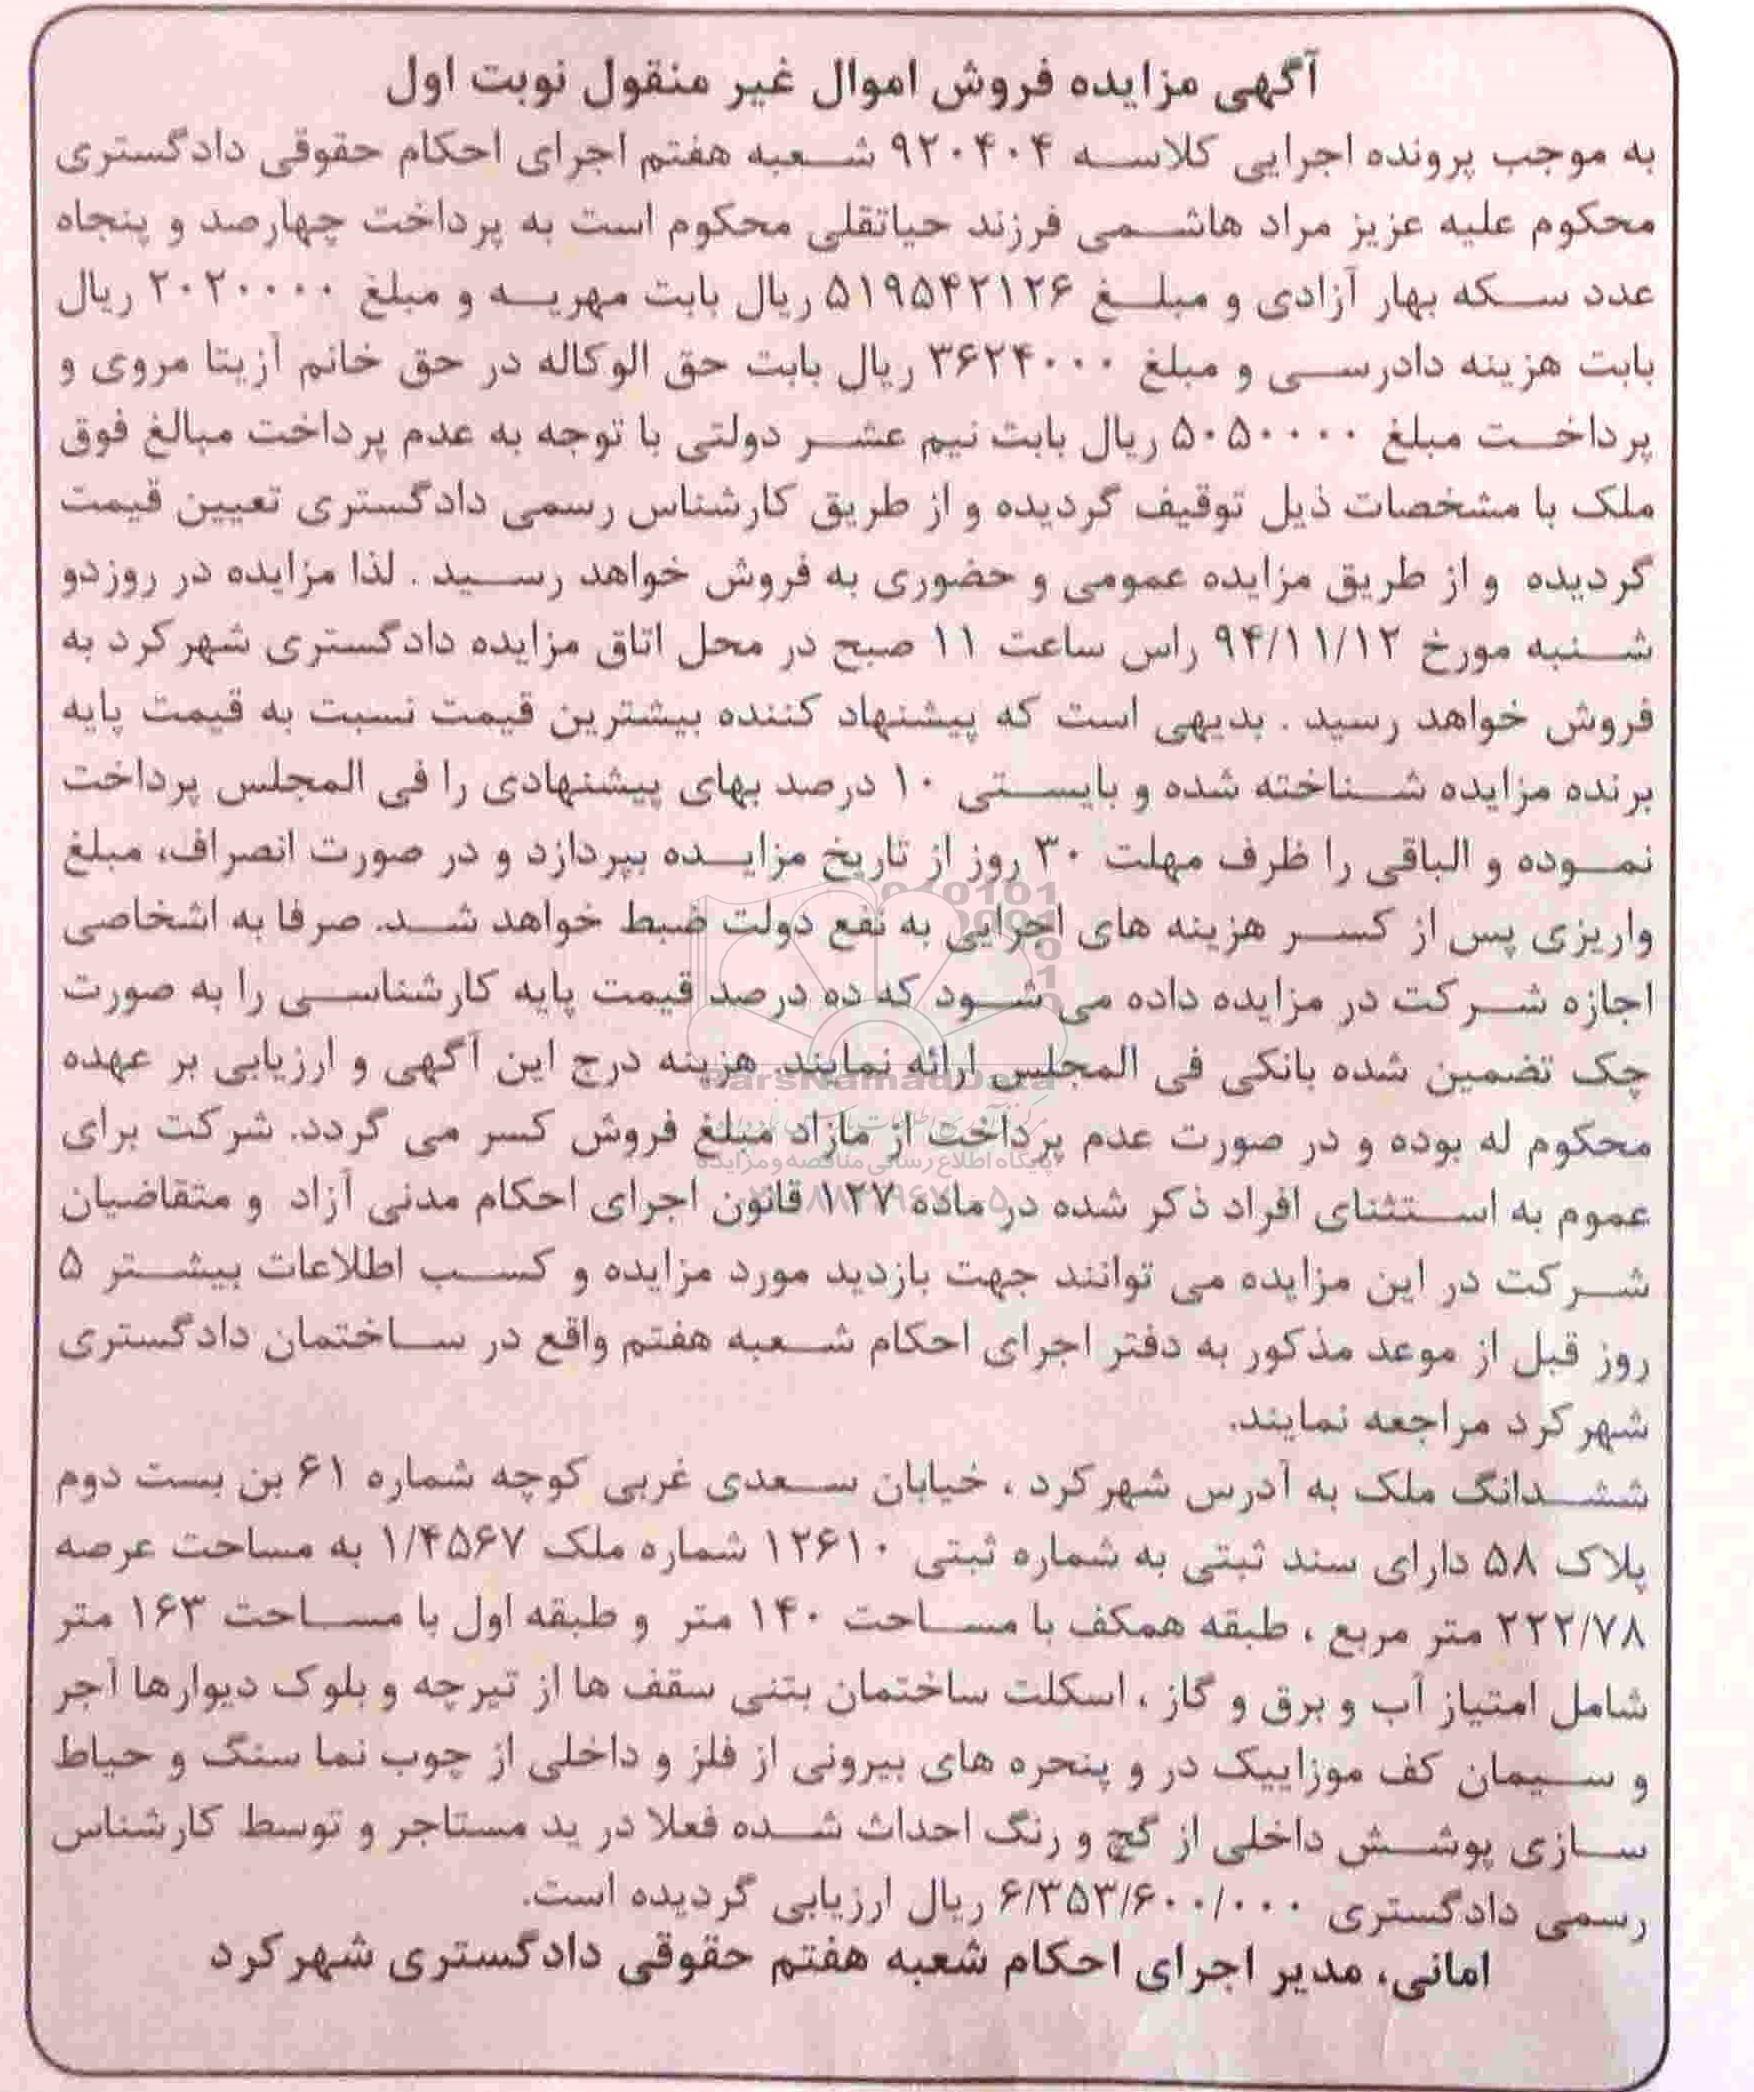 آگهی مزایده فروش اموال غیر منقول نوبت اول
به موجب پرونده اجرایی کلاسه ۹۲۰۴۰۴ شعبه هفتم اجرای احکام حقوقی دادگستری
محکوم علیه عزیز مراد هاشمی فرزند حیاتقلی محکوم است به پرداخت چهارصد و پنجاه
عدد سکه بهار آزادی و مبلغ ۵۱۹۵۴۲۱۲۶ ریال بابت مهریه و مبلغ ۲۰۲۰۰۰۰ ریال
بابت هزینه دادرسی و مبلغ ۳۶۲۴۰۰۰ ریال بابت حق الوکاله در حق خانم آزیتا مروی و
پرداخت مبلغ ۵۰۵۰۰۰۰ ریال بابت نیم عشر دولتی با توجه به عدم پرداخت مبالغ فوق
ملک با مشخصات ذیل توقیف گردیده و از طریق کارشناس رسمی دادگستری تعیین قیمت
گردیده و از طریق مزایده عمومی و حضوری به فروش خواهد رسید . لذا مزایده در روزدو
شنبه مورخ ۹۴/۱۱/۱۲ راس ساعت ۱۱ صبح در محل اتاق مزایده دادگستری شهرکرد به
فروش خواهد رسید . بدیهی است که پیشنهاد کننده بیشترین قیمت نسبت به قیمت پایه
برنده مزایده شناخته شده و بایستی ۱۰ درصد بهای پیشنهادی را فی المجلس پرداخت
نموده و الباقی را ظرف مهلت ۳۰ روز از تاریخ مزایده بپردازد و در صورت انصراف، مبلغ
واریزی پس از کسر هزینه های اجرایی به نفع دولت ضبط خواهد شد. صرفا به اشخاصی
اجازه شرکت در مزایده داده می شود که ده درصد قیمت پایه کارشناسی را به صورت
چک تضمین شده بانکی فی المجلس ارائه نمایند. هزینه درج این آگهی و ارزیابی بر عهده
محکوم له بوده و در صورت عدم پرداخت از مازاد مبلغ فروش کسر می گردد. شرکت برای
پایگاه اطلاع رسانی مناقصه و مزایده
عموم به استثنای افراد ذکر شده در ماده ۱۲۷ قانون اجرای احکام مدنی آزاد و متقاضیان
شرکت در این مزایده می توانند جهت بازدید مورد مزایده و کسب اطلاعات بیشتر ۵
روز قبل از موعد مذکور به دفتر اجرای احکام شعبه هفتم واقع در ساختمان دادگستری
شهرکرد مراجعه نمایند.
ششدانگ ملک به آدرس شهرکرد ، خیابان سعدی غربی کوچه شماره ۶۱ بن بست دوم
پلاک ۵۸ دارای سند ثبتی به شماره ثبتی ۱۲۶۱۰ شماره ملک ۱/۴۵۶۷ به مساحت عرصه
۲۲۲/۷۸ متر مربع ، طبقه همکف با مساحت ۱۴۰ متر و طبقه اول با مساحت ۱۶۳ متر
شامل امتیاز آب و برق و گاز ، اسکلت ساختمان بتنی سقف ها از تیرچه و بلوک دیوارها آجر
و سیمان کف موزاییک در و پنحره های بیرونی از فلز و داخلی از چوب نما سنگ و حیاط
سازی پوشش داخلی از گچ و رنگ احداث شده فعلا در ید مستاجر و توسط کارشناس
رسمی دادگستری ۶/۳۵۳/۶۰۰/۰۰۰ ریال ارزیابی گردیده است.
امانی، مدیر اجرای احکام شعبه هفتم حقوقی دادگستری شهرکرد